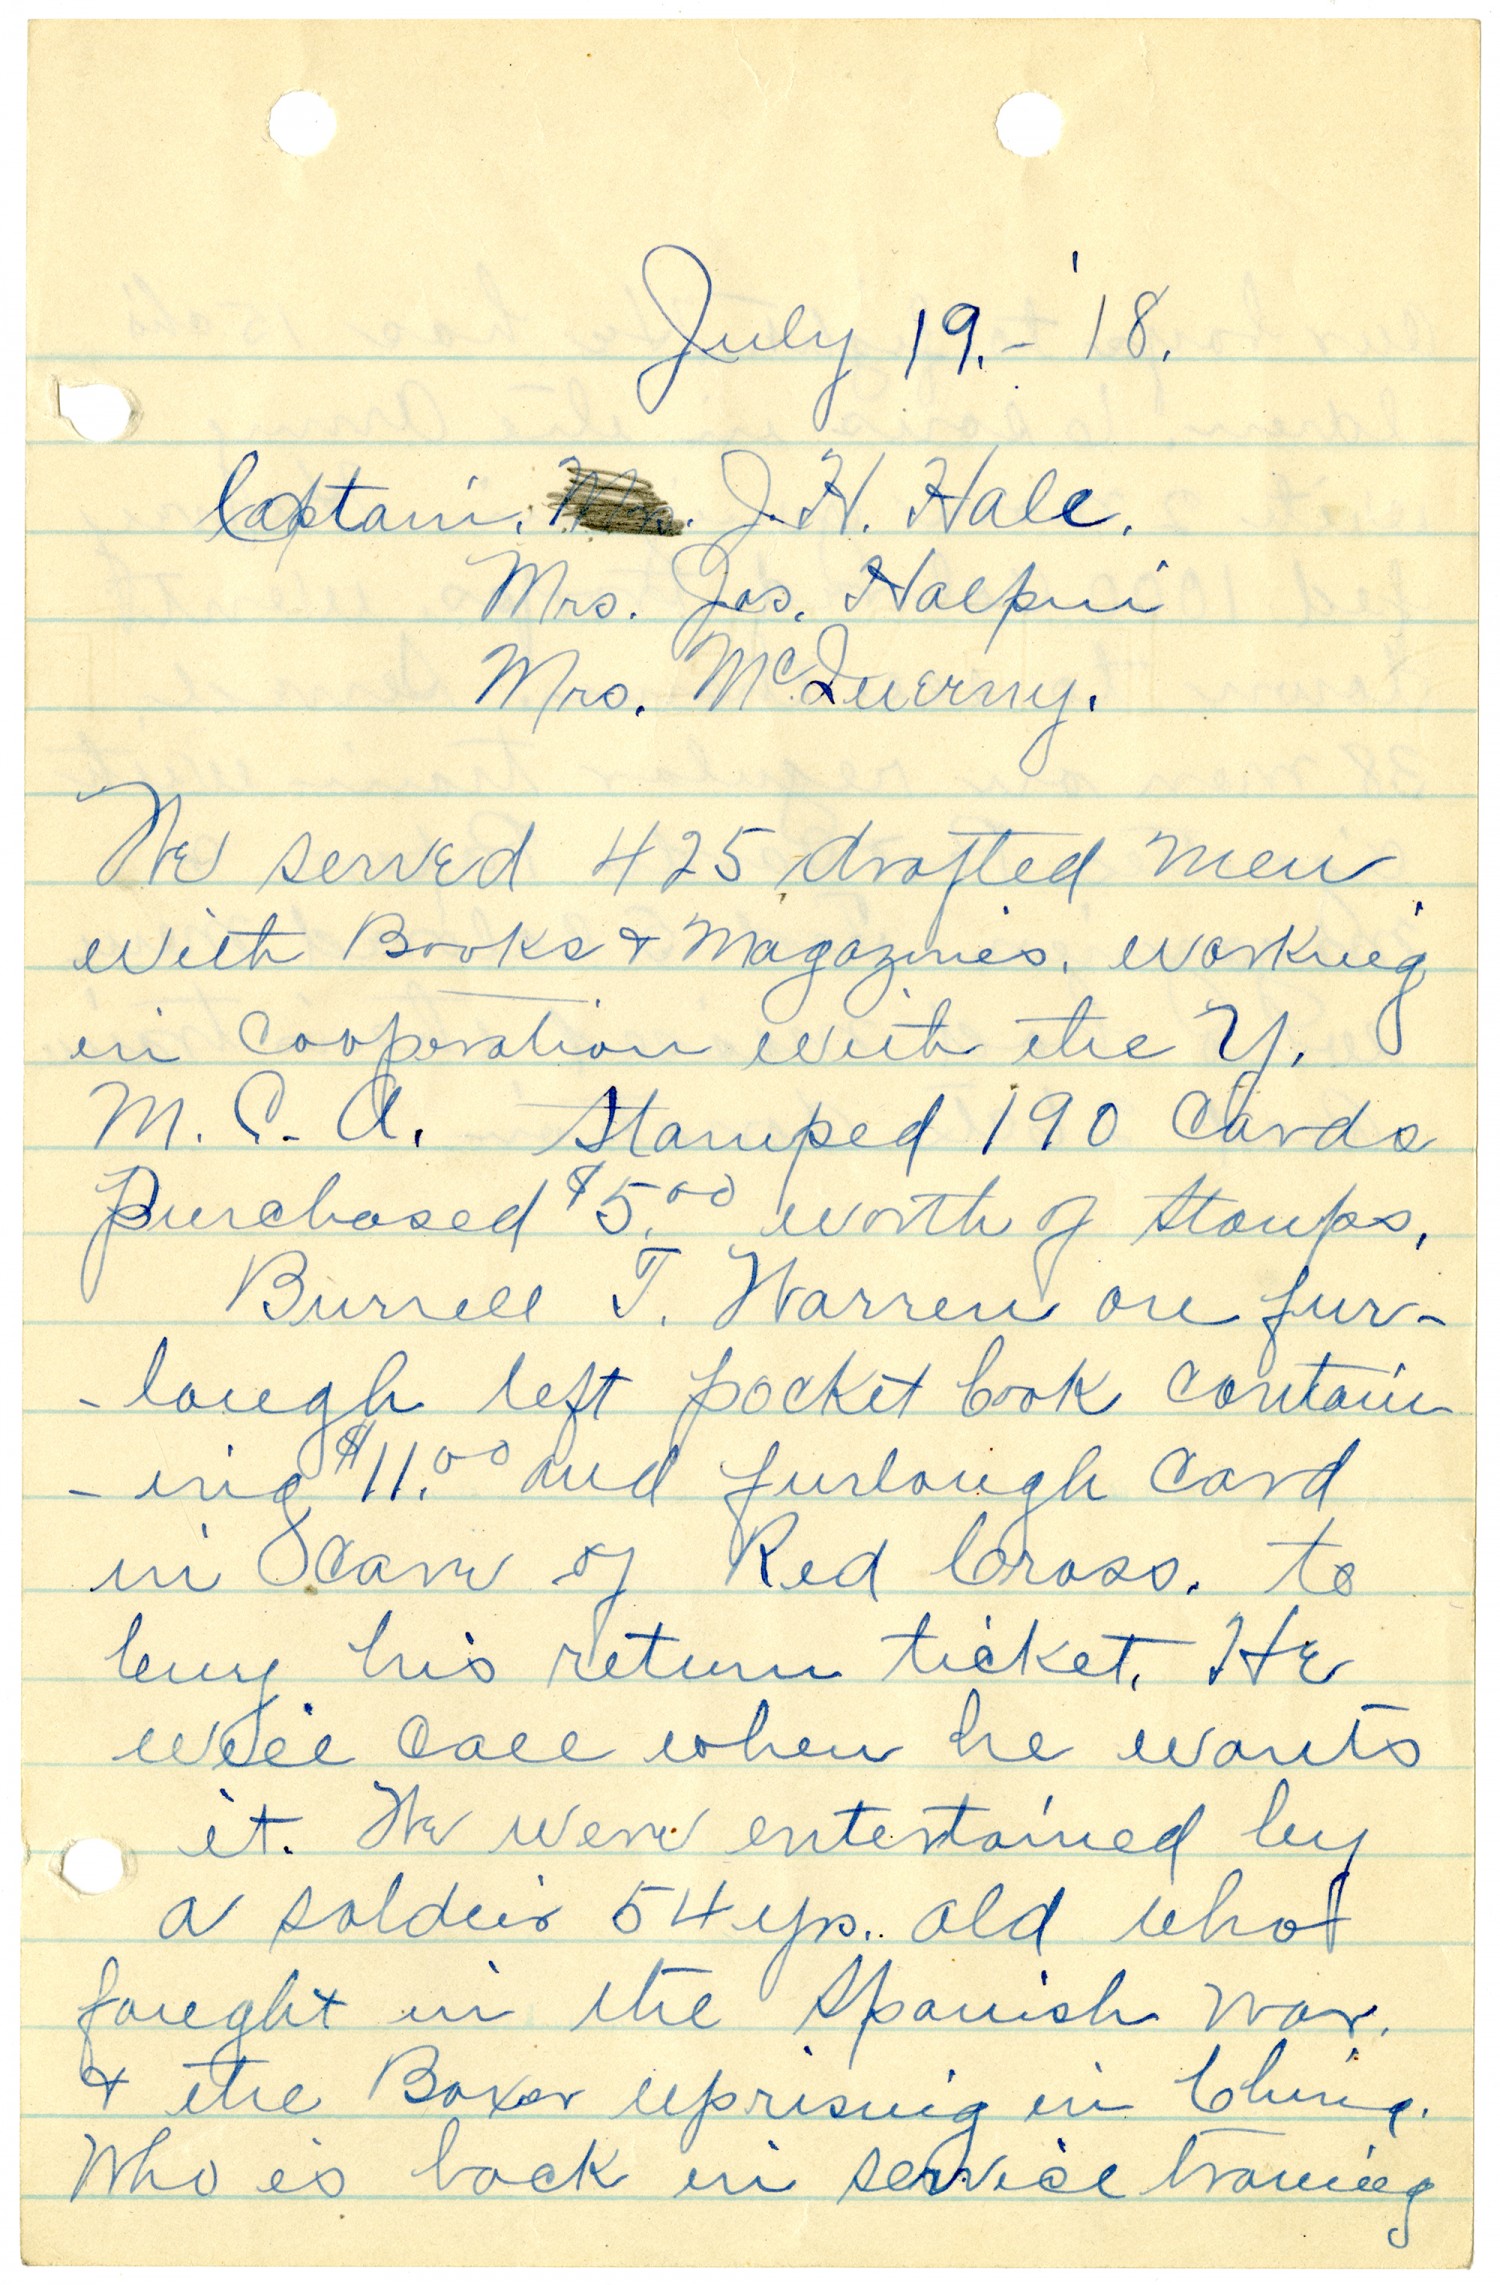 July 19. - '18.
Captain. J. H. Hale.
Mrs. Jos. Halpin
Mrs. McQuerny.
We served 425 drafted men
with Books & Magazines. working
in cooperation with the Y.
M. C. A. Stamped 190 cards
Purchased $5.00 worth of stamps.
Burrell T. Warren on fur-
-lough left pocket book contain
-ing $11.00 and furlough card
in care of Red Cross. to
buy his return ticket. He
will call when he wants
it. We were entertained by
a soldier 54 yrs. old who
fought in the Spanish war.
& the Boxer uprising in China.
Who is back in service training